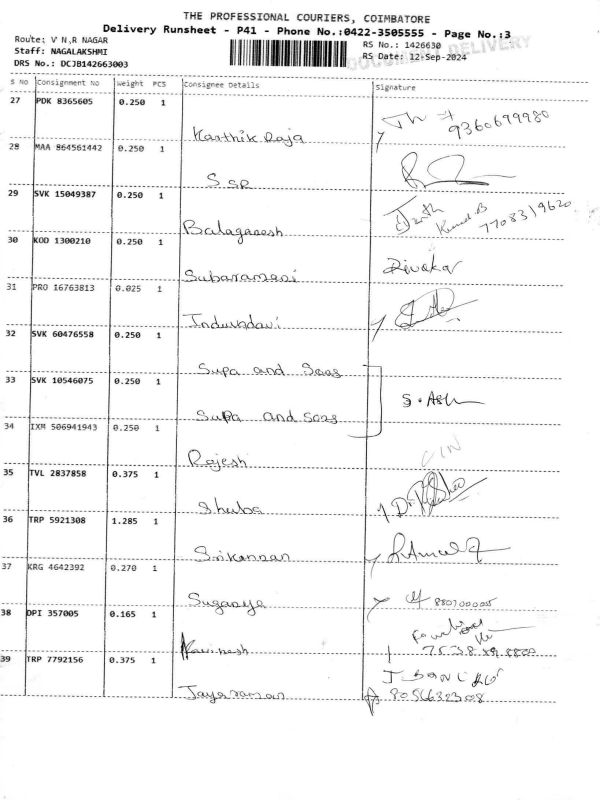 THE PROFESSIONAL COURIERS, COIMBATORE
Delivery Runsheet - P41 - Phone No.:0422-3505555 - Page No.:3
Route: V N,R NAGAR RS No.: 1426630
DELIVERY
Staff: NAGALAKSHMI RS Date: 12-Sep-2024
DRS No.: DCJB142663003
S No Consignment No Weight PCS Consignee Details Signature
27 PDK 8365605 0.250 1
Karthik Raja 9360699980
28 MAA 864561442 0.250 1
S SP
29 SVK 15049387 0.250 1
Balaganesh 7708319620
30 KOD 1300210 0.250 1
Subaramani Divakar
31 PRO 16763813 0.025 1
Indundavi
32 SVK 60476558 0.250 1
Supa and Sons
33 SVK 10546075 0.250 1
Supa and sons S. Ash
34 IXM 506941943 0.250 1
Rajesh
35 TVL 2837858 0.375 1
Shuba
36 TRP 5921308 1.285 1
Srikannan
37 KRG 4642392 0.270 1
Suganya
38 DPI 357005 0.165 1
Kavinesh
39 TRP 7792156 0.375 1
Jayaraman